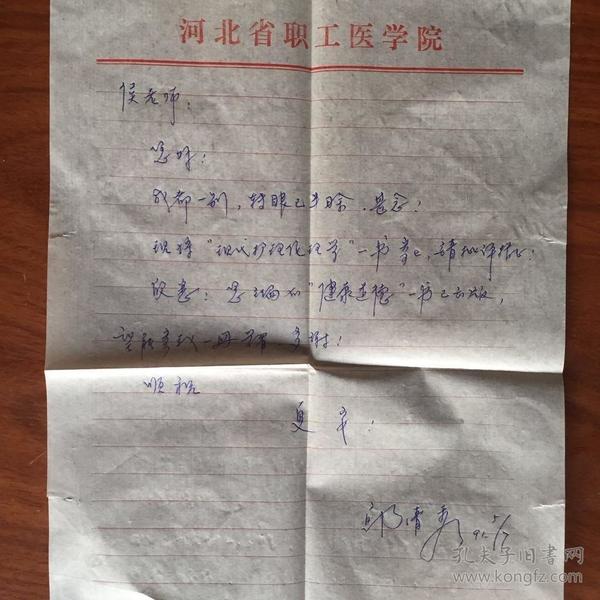 河北省职工医学院
侯老师：
您好：
成都一别，转眼已半余，甚念！
现将“现代护理伦理学”一书寄上，请批评指正！
欣悉：您主编的“健康道德”一书已出版，
望能寄我一册 多谢！
顺祝
夏安！
孔夫子旧书网
www.kongfz.com